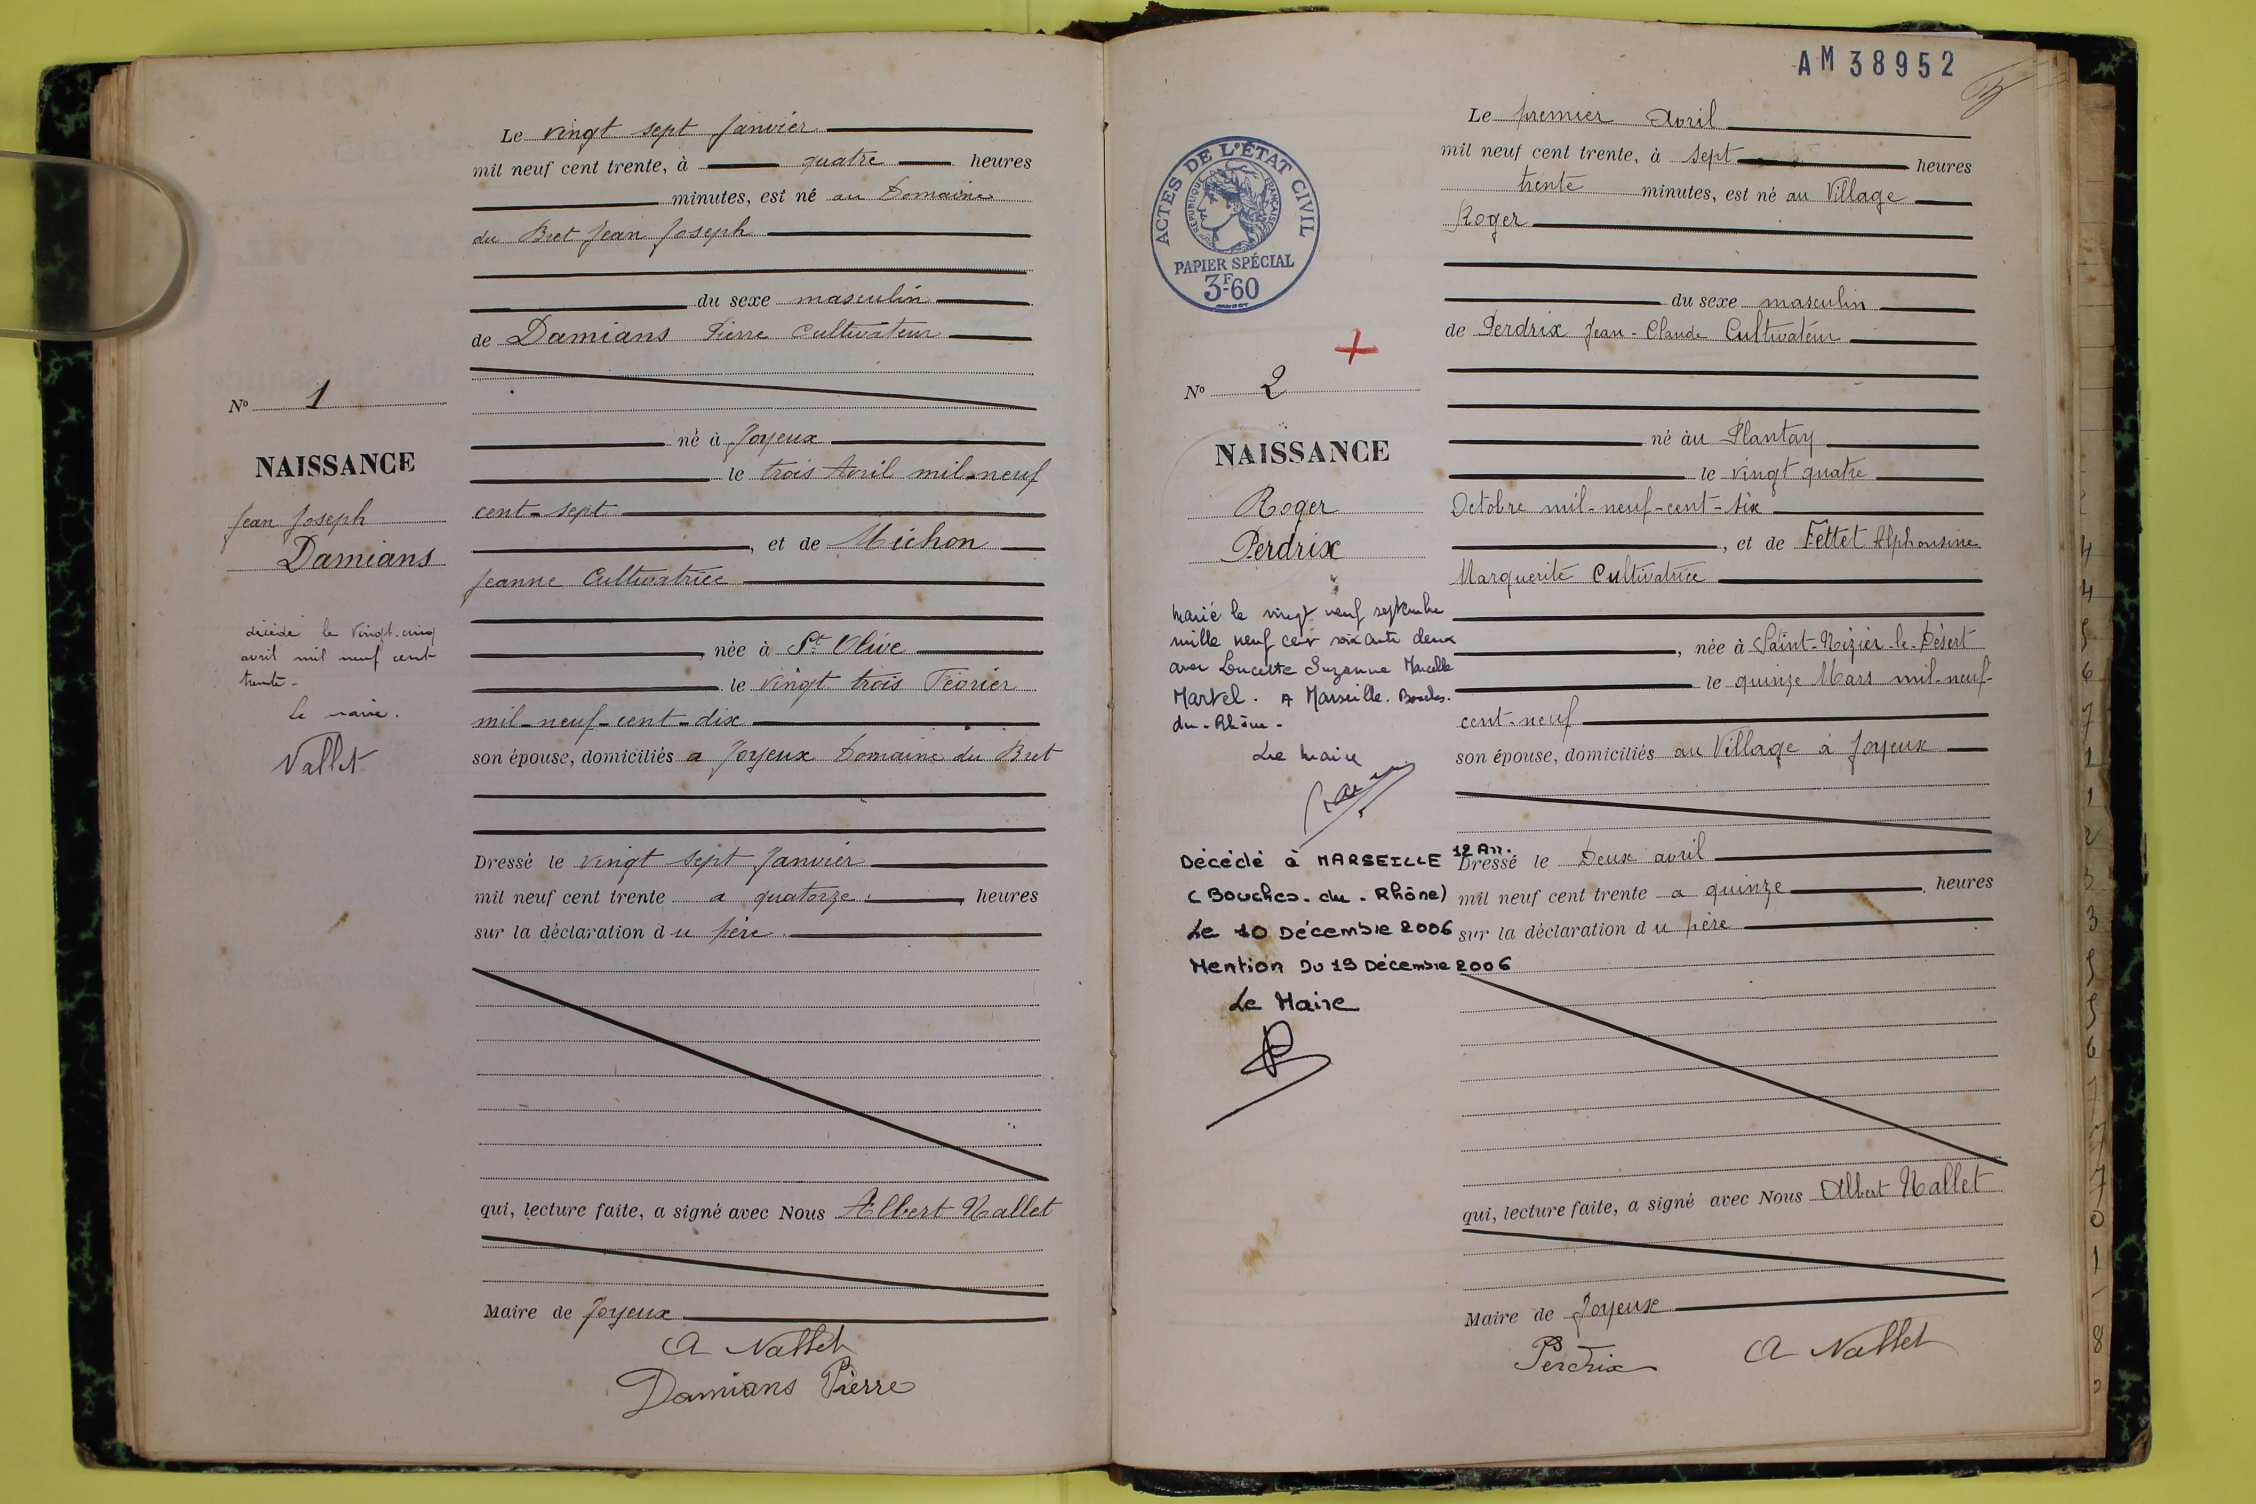 Le vingt sept Janvier
mil neuf cent trente, à quatre heures
minutes, est né au Domaine
du Bret Jean Joseph
du sexe masculin
de Damians Pierre Cultivateur
né à Joyeux
le trois Avril mil-neuf
cent-sept
, et de Michon
Jeanne Cultivatrice
, née à St Olive
le vingt trois Février
mil-neuf-cent-dix
son épouse, domiciliés a Joyeux Domaine du Bret
Dressé le vingt sept Janvier
mil neuf cent trente a quatorze, heures
sur la déclaration du père
qui, lecture faite, a signé avec Nous Albert Nallet
Maire de Joyeux
A Nallet
Damians Pierre
No 1
NAISSANCE
Jean Joseph
Damians
décédé le vingt-cinq
avril mil neuf cent
trente-
Le maire.
Nallet
AM 38952
ACTES DE L'ÉTAT CIVIL
RÉPUBLIQUE FRANÇAISE
PAPIER SPÉCIAL
3F60
No 2
NAISSANCE
Roger
Perdrix
Marié le vingt neuf septembre
mille neuf cent soixante deux
avec Lucette Suzanne Marcelle
Martel. A Marseille. Bouches.
du-Rhône-
Le Maire
Décédé à MARSEILLE 12 Arr.
(Bouches-du-Rhône)
Le 10 Décembre 2006
Mention Du 19 Décembre 2006
Le Maire
Le premier Avril
mil neuf cent trente, à sept heures
trente minutes, est né au Village
Roger
du sexe masculin
de Perdrix Jean-Claude Cultivateur
né au Plantay
le vingt quatre
Octobre mil-neuf-cent-six
, et de Fettet Alphonsine
Marguerite Cultivatrice
, née à Saint-Nizier-le-Désert
le quinze Mars mil-neuf-
cent-neuf
son épouse, domiciliés au Village à Joyeux
Dressé le Deux avril
mil neuf cent trente a quinze heures
sur la déclaration du père
qui, lecture faite, a signé avec Nous Albert Nallet
Maire de Joyeux
Perdrix A Nallet